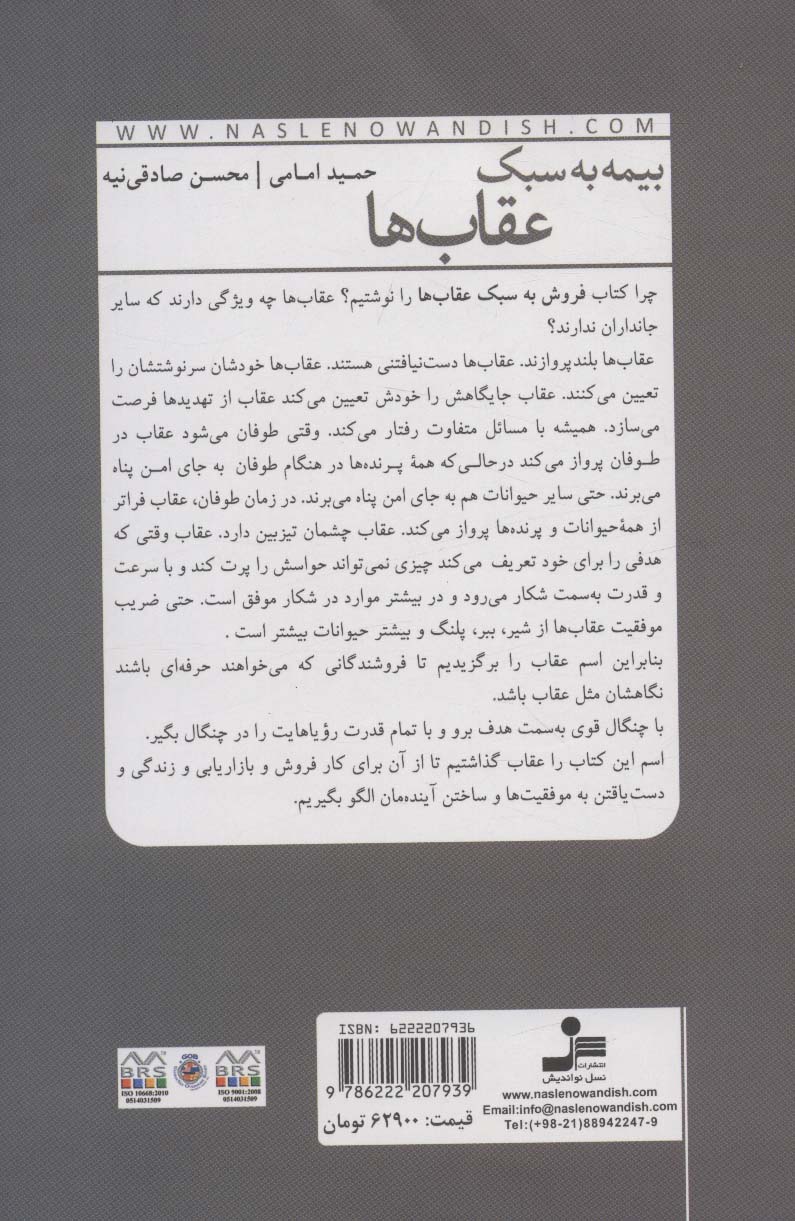 WWW.NASLENOWANDISH.COM
بیمه به سبک
حمید امامی | محسن صادقی‌نیه
عقاب‌ها
چرا کتاب فروش به سبک عقاب‌ها را نوشتیم؟ عقاب‌ها چه ویژگی دارند که سایر
جانداران ندارند؟
عقاب‌ها بلندپروازند. عقاب‌ها دست‌نیافتنی هستند. عقاب‌ها خودشان سرنوشتشان را
تعیین می‌کنند. عقاب جایگاهش را خودش تعیین می‌کند عقاب از تهدیدها فرصت
می‌سازد. همیشه با مسائل متفاوت رفتار می‌کند. وقتی طوفان می‌شود عقاب در
طوفان پرواز می‌کند درحالی‌که همهٔ پرنده‌ها در هنگام طوفان به جای امن پناه
می‌برند. حتی سایر حیوانات هم به جای امن پناه می‌برند. در زمان طوفان، عقاب فراتر
از همهٔ حیوانات و پرنده‌ها پرواز می‌کند. عقاب چشمان تیزبین دارد. عقاب وقتی که
هدفی را برای خود تعریف می‌کند چیزی نمی‌تواند حواسش را پرت کند و با سرعت
و قدرت به‌سمت شکار می‌رود و در بیشتر موارد در شکار موفق است. حتی ضریب
موفقیت عقاب‌ها از شیر، ببر، پلنگ و بیشتر حیوانات بیشتر است .
بنابراین اسم عقاب را برگزیدیم تا فروشندگانی که می‌خواهند حرفه‌ای باشند
نگاهشان مثل عقاب باشد.
با چنگال قوی به‌سمت هدف برو و با تمام قدرت رؤیاهایت را در چنگال بگیر.
اسم این کتاب را عقاب گذاشتیم تا از آن برای کار فروش و بازاریابی و زندگی و
دست‌یافتن به موفقیت‌ها و ساختن آینده‌مان الگو بگیریم.
ISBN: 6222207936
9 786222 207939
قیمت: ۶۲۹۰۰ تومان
انتشارات
نسل نواندیش
www.naslenowandish.com
Email:info@naslenowandish.com
Tel:(+98-21)88942247-9
BRS
ISO 10668:2010
0514031509
GOB
BRS
ISO 9001:2008
0514031509